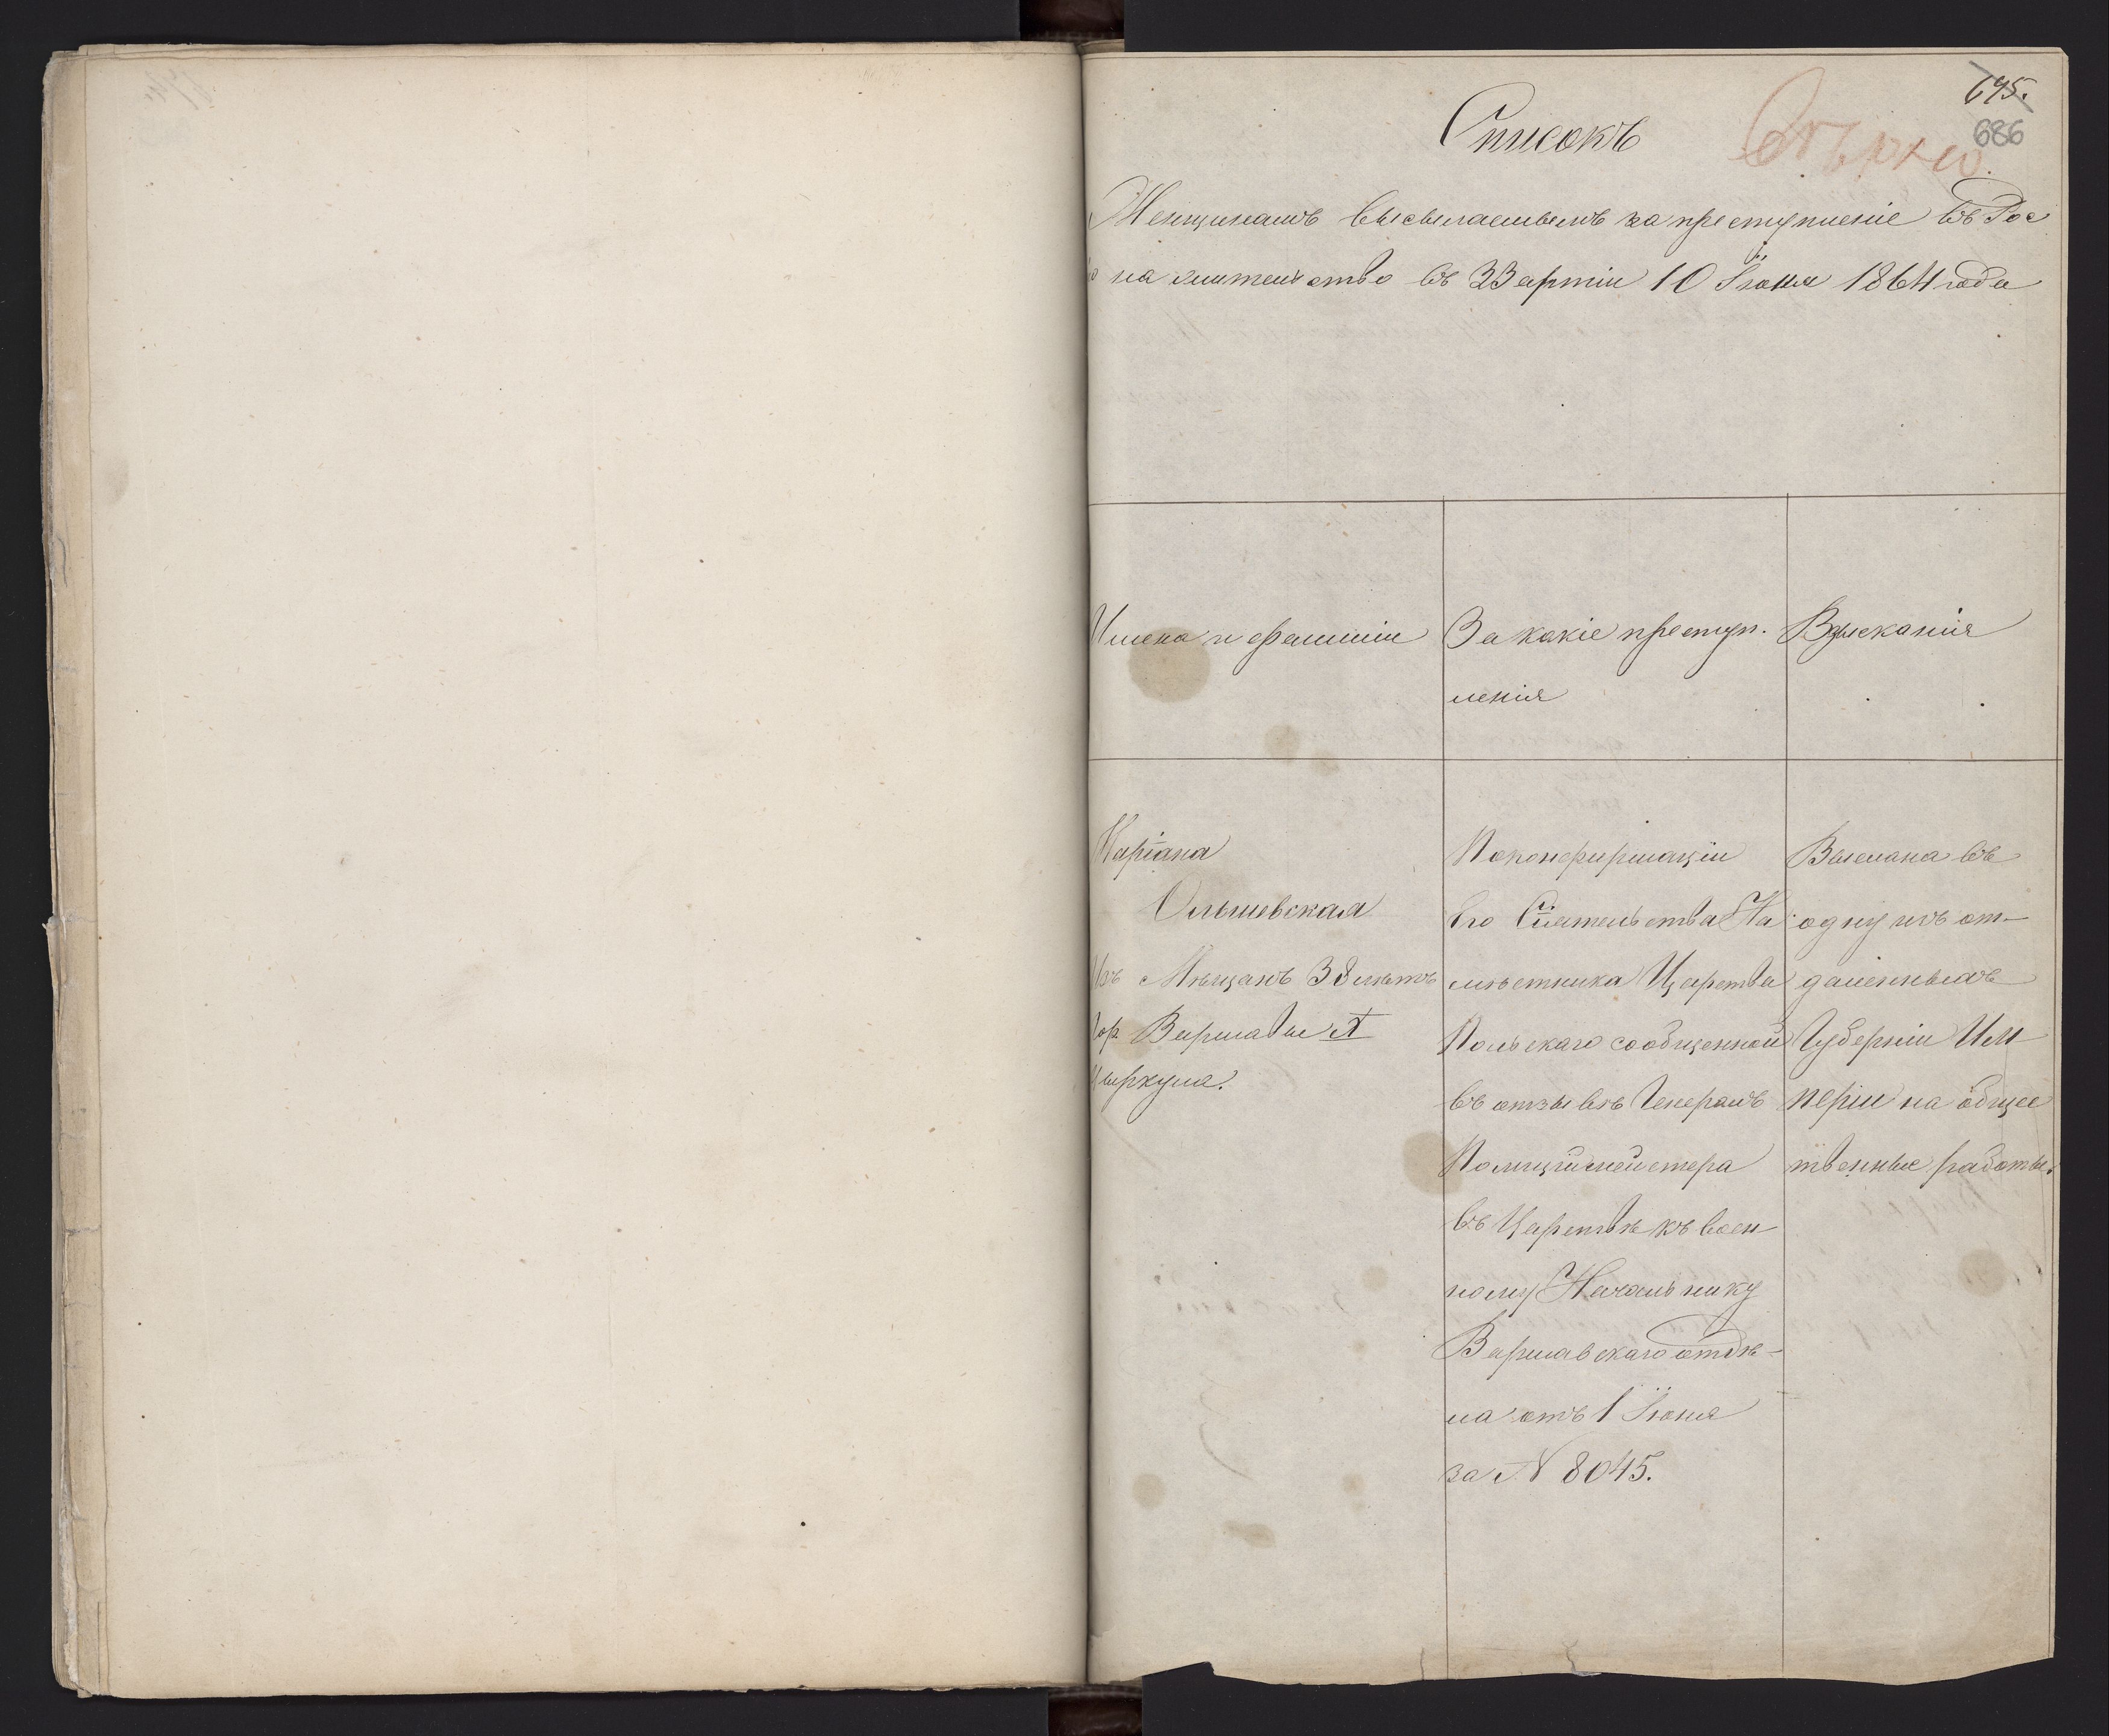 645.
686
Списокъ
Женщинамъ высылаемымъ за преступленіе въ Рос
на жительство въ Партіи 10 Іюня 1864 года
Имена и фамиліи
За какіе преступ.
ленія
Взысканія
Маріана
Ольшевская
Изъ Мѣщанъ 38 лѣтъ
Гор. Варшавы X
Цыркула.
По конфирмаціи
Его Сіятельства На
мѣстника Царства
Польскаго сообщенной
въ отзывѣ Генералъ
Полицiймейстера
въ Царствѣ къ Воен
ному Начальнику
Варшавскаго отдѣ-
ла отъ 1 Іюня
за N 8045.
Выслана въ
одну изъ от-
даленныхъ
Губерніи Им
періи на общес
твенные работы.